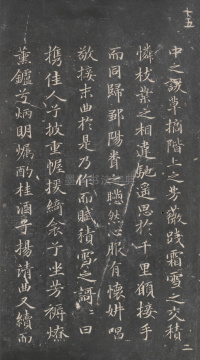 十五
中之諼草摘階上之芳薇踐霜雪之交積
憐枝葉之相違馳遥思於千里願接手
而同歸鄒陽聞之懣然心服有懷妍唱
敬接末曲於是乃作而賦積雪之謌〻曰
攜佳人兮披重幄援綺衾兮坐芳褥燎
薰鑪兮炳明燭酌桂酒兮揚清曲又續而
二